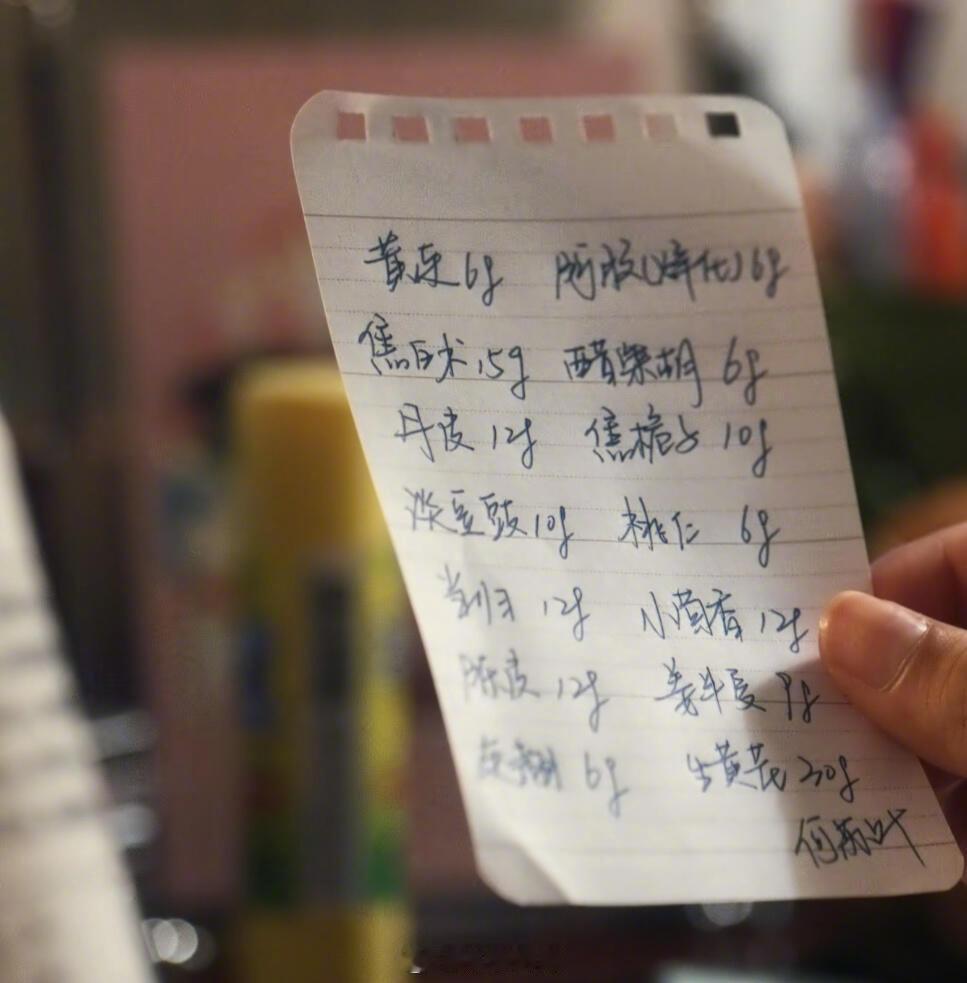 黄连6g 阿胶(烊化)6g
焦白术15g 醋柴胡 6g
丹皮 12g 焦栀子 10g
淡豆豉10g 桃仁 6g
当归 12g 小茴香12g
陈皮 12g 姜半夏 9g
6g 生黄芪30g
何苏叶